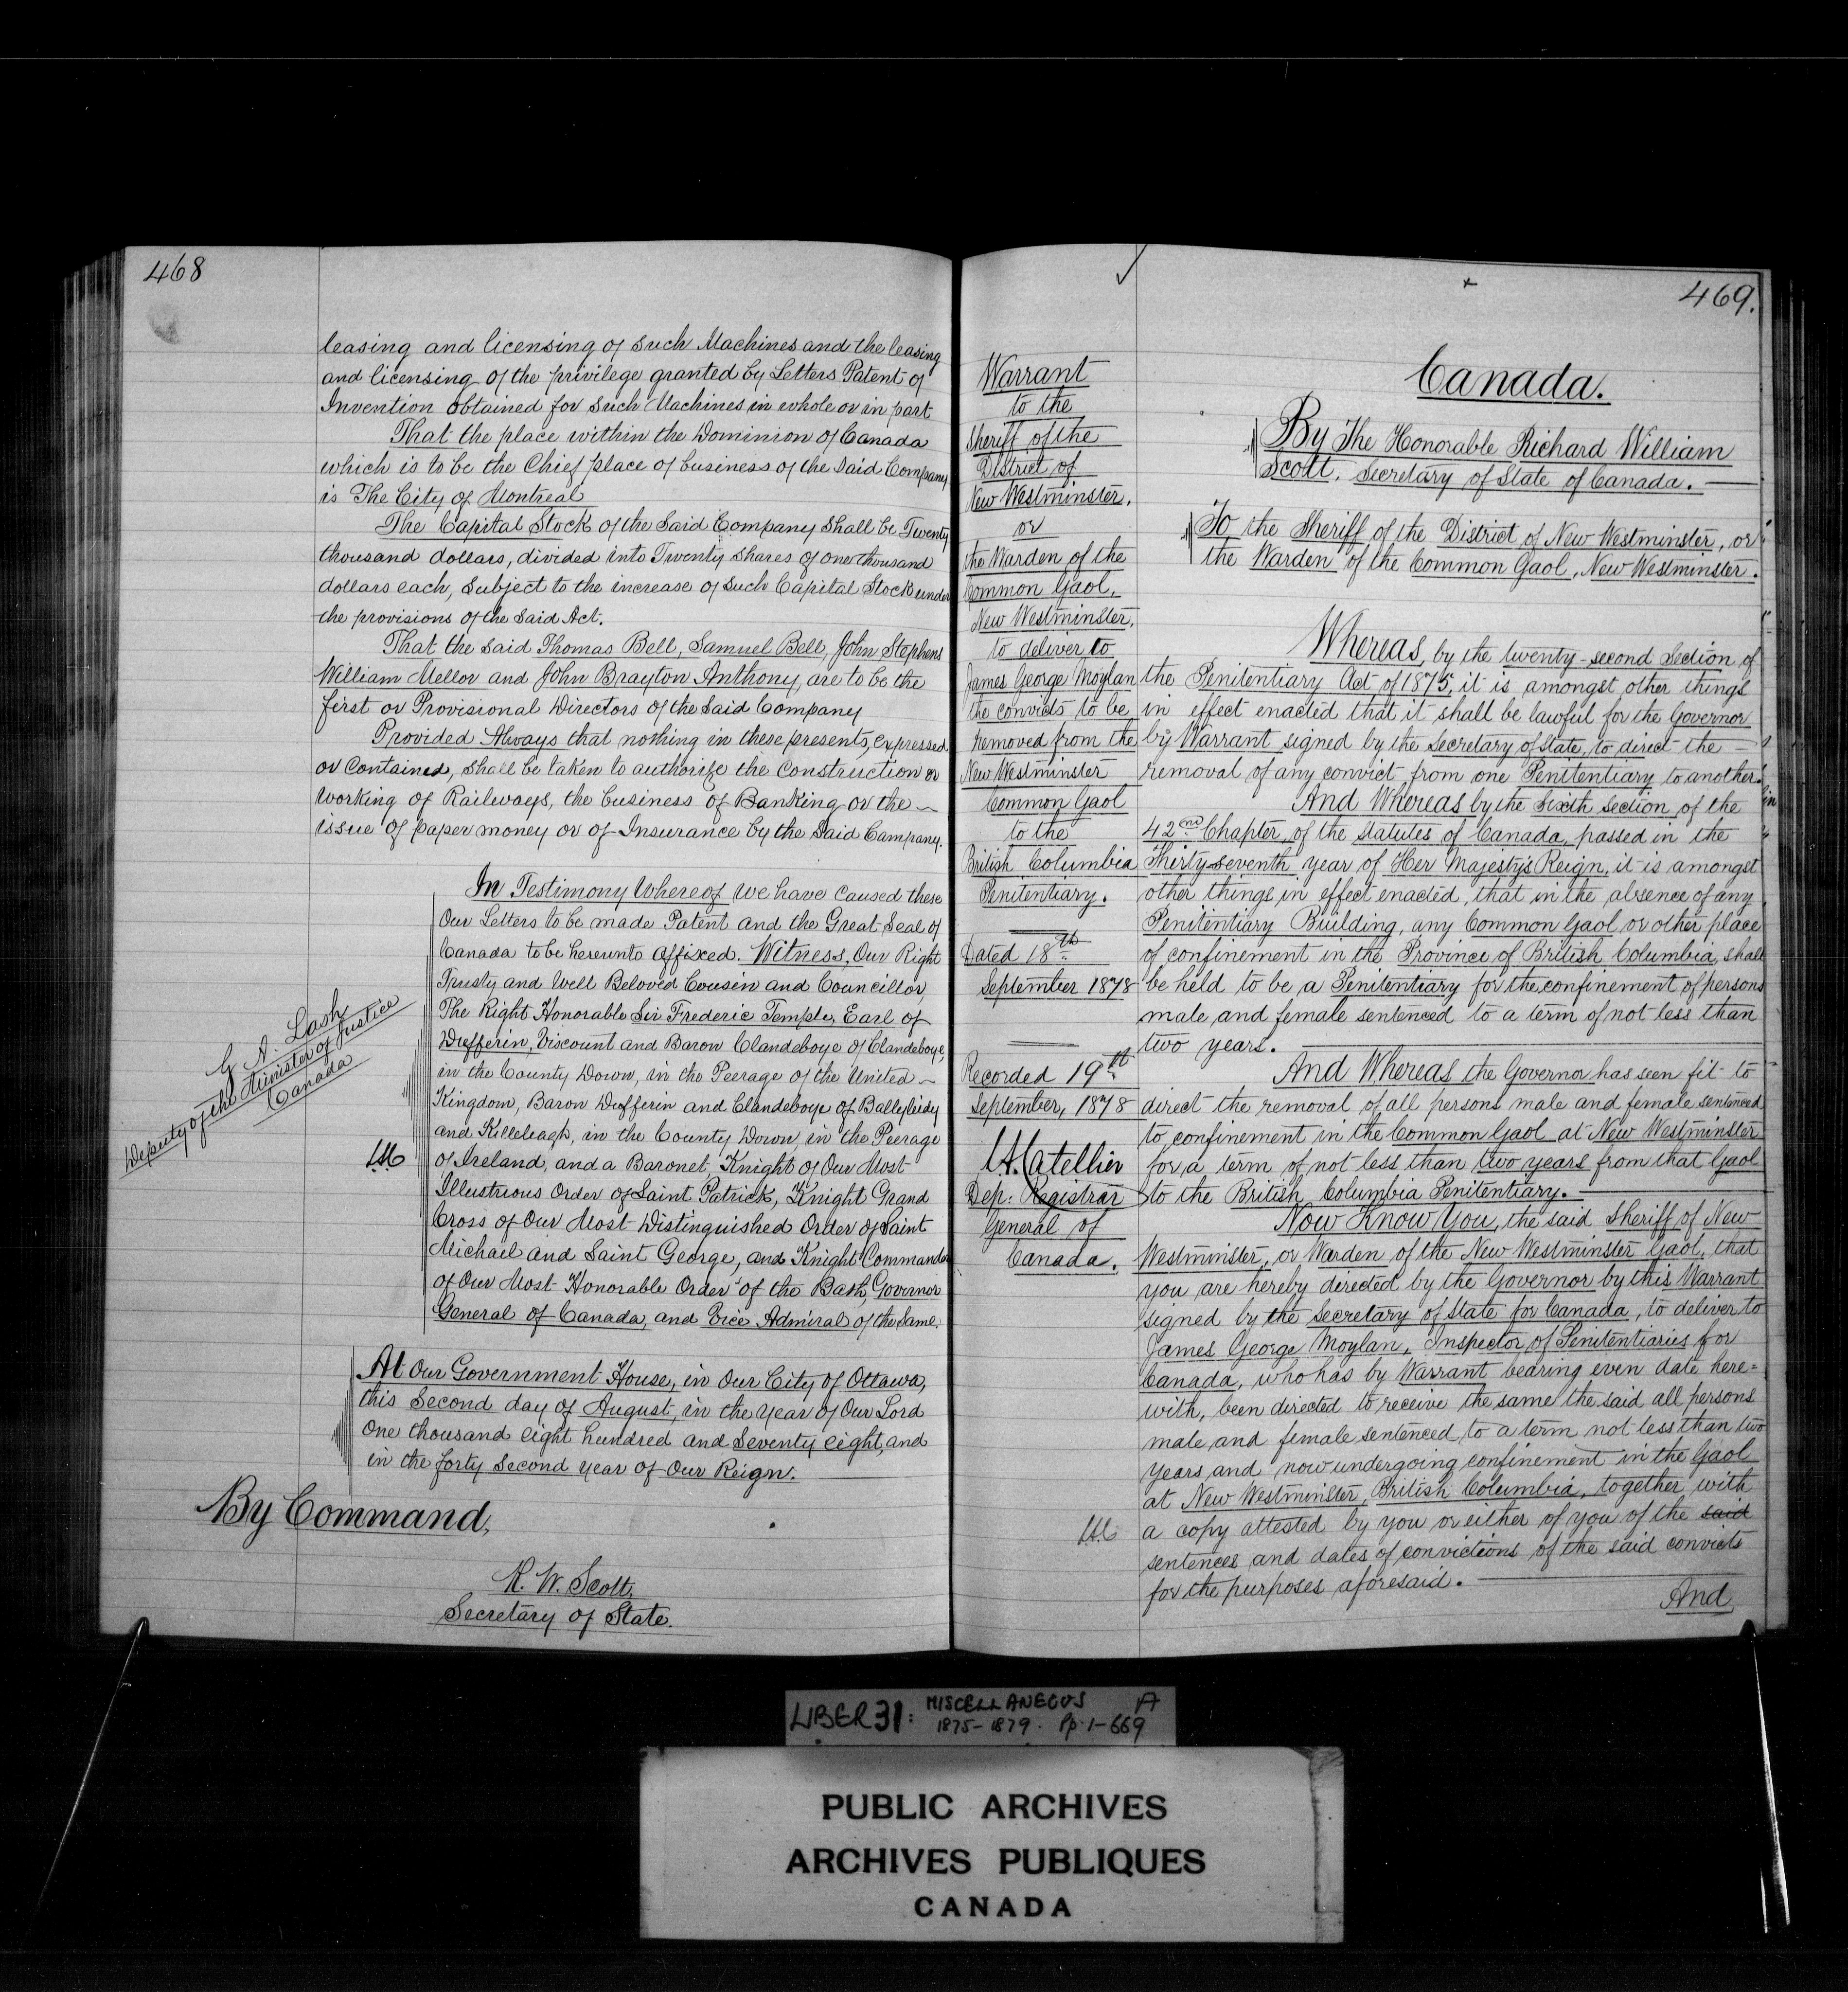 468
leasing and licensing of such Machines and the leasing
and licensing of the privilege granted by Letters Patent of
Invention obtained for such Machines in whole or in part
That the place within the Dominion of Canada
which is to be the Chief place of business of the said Company
is The City of Montreal
The Capital Stock of the said Company shall be Twenty
thousand dollars, divided into Twenty shares of one thousand
dollars each, subject to the increase of such Capital Stock under
the provisions of the said Act.
That the said Thomas Bell, Samuel Bell, John Stephens
William Mellor and John Brayton Anthony, are to be the
first or Provisional Directors of the said Company
Provided Always that nothing in these presents, expressed
or contained, shall be taken to authorize the construction or
working of Railways, the business of Banking or the
issue of paper money or of Insurance by the said Company.
In Testimony Whereof we have caused these
Our Letters to be made Patent and the Great Seal of
Canada to be hereunto affixed. Witness, Our Right
Trusty and Well Beloved Cousin and Councillor
The Right Honorable Sir Frederic Temple, Earl of
Dufferin, Viscount and Baron Clandeboye of Clandeboye,
in the County Down, in the Peerage of the United
Kingdom, Baron Dufferin and Clandeboye of Balleyleidy
and Killeleagh, in the County Down, in the Peerage
of Ireland, and a Baronet, Knight of Our Most
Illustrious Order of Saint Patrick, Knight Grand
Cross of Our Most Distinguished Order of Saint
Michael and Saint George, and Knight Commander
of Our Most Honorable Order of the Bath, Governor
General of Canada, and Vice Admiral of the same.
G. A. Lash
Deputy of the Minister of Justice
Canada
At Our Government House, in Our City of Ottawa,
this Second day of August, in the year of Our Lord
One thousand eight hundred and Seventy eight, and
in the forty second year of Our Reign.
By Command,
R. W. Scott,
Secretary of State.
469.
Warrant
to the
Sheriff of the
District of
New Westminster,
or
the Warden of the
Common Gaol,
New Westminster,
to deliver to
James George Moylan
the convicts to be
removed from the
New Westminster
Common Gaol
to the
British Columbia
Penitentiary.
Dated 18th
September 1878
Recorded 19th
September, 1878
L.A. Catellier
Dep: Registrar
General of
Canada.
Canada.
By The Honorable Richard William
Scott, Secretary of State of Canada.
To the Sheriff of the District of New Westminster, or
the Warden of the Common Gaol, New Westminster.
Whereas, by the twenty-second Section of
the Penitentiary Act of 1875, it is amongst other things
in effect enacted that it shall be lawful for the Governor
by Warrant signed by the Secretary of State, to direct the
removal of any convict from one Penitentiary to another.
And Whereas by the Sixth section of the
42nd Chapter, of the Statutes of Canada, passed in the
Thirty-seventh year of Her Majesty's Reign, it is amongst
other things in effect enacted, that in the absence of any
Penitentiary Building, any Common Gaol or other place
of confinement in the Province of British Columbia, shall
be held to be a Penitentiary for the confinement of persons
male and female sentenced to a term of not less than
two years.
And Whereas the Governor has seen fit to
direct the removal of all persons male and female sentenced
to confinement in the Common Gaol at New Westminster
for a term of not less than two years from that Gaol
to the British Columbia Penitentiary.
Now Know You, the said Sheriff of New
Westminster, or Warden of the New Westminster Gaol, that
you are hereby directed by the Governor by this Warrant
signed by the Secretary of State for Canada, to deliver to
James George Moylan, Inspector of Penitentiaries for
Canada, who has by Warrant bearing even date here=
with, been directed to receive the same the said all persons
male and female sentenced to a term not less than two
years and now undergoing confinement in the Gaol
at New Westminster, British Columbia, together with
a copy attested by you or either of you of the said
sentences and dates of convictions of the said convicts
for the purposes aforesaid.
And
LIBER 31: MISCELLANEOUS A
1875-1879. Pp. 1-669
PUBLIC ARCHIVES
ARCHIVES PUBLIQUES
CANADA